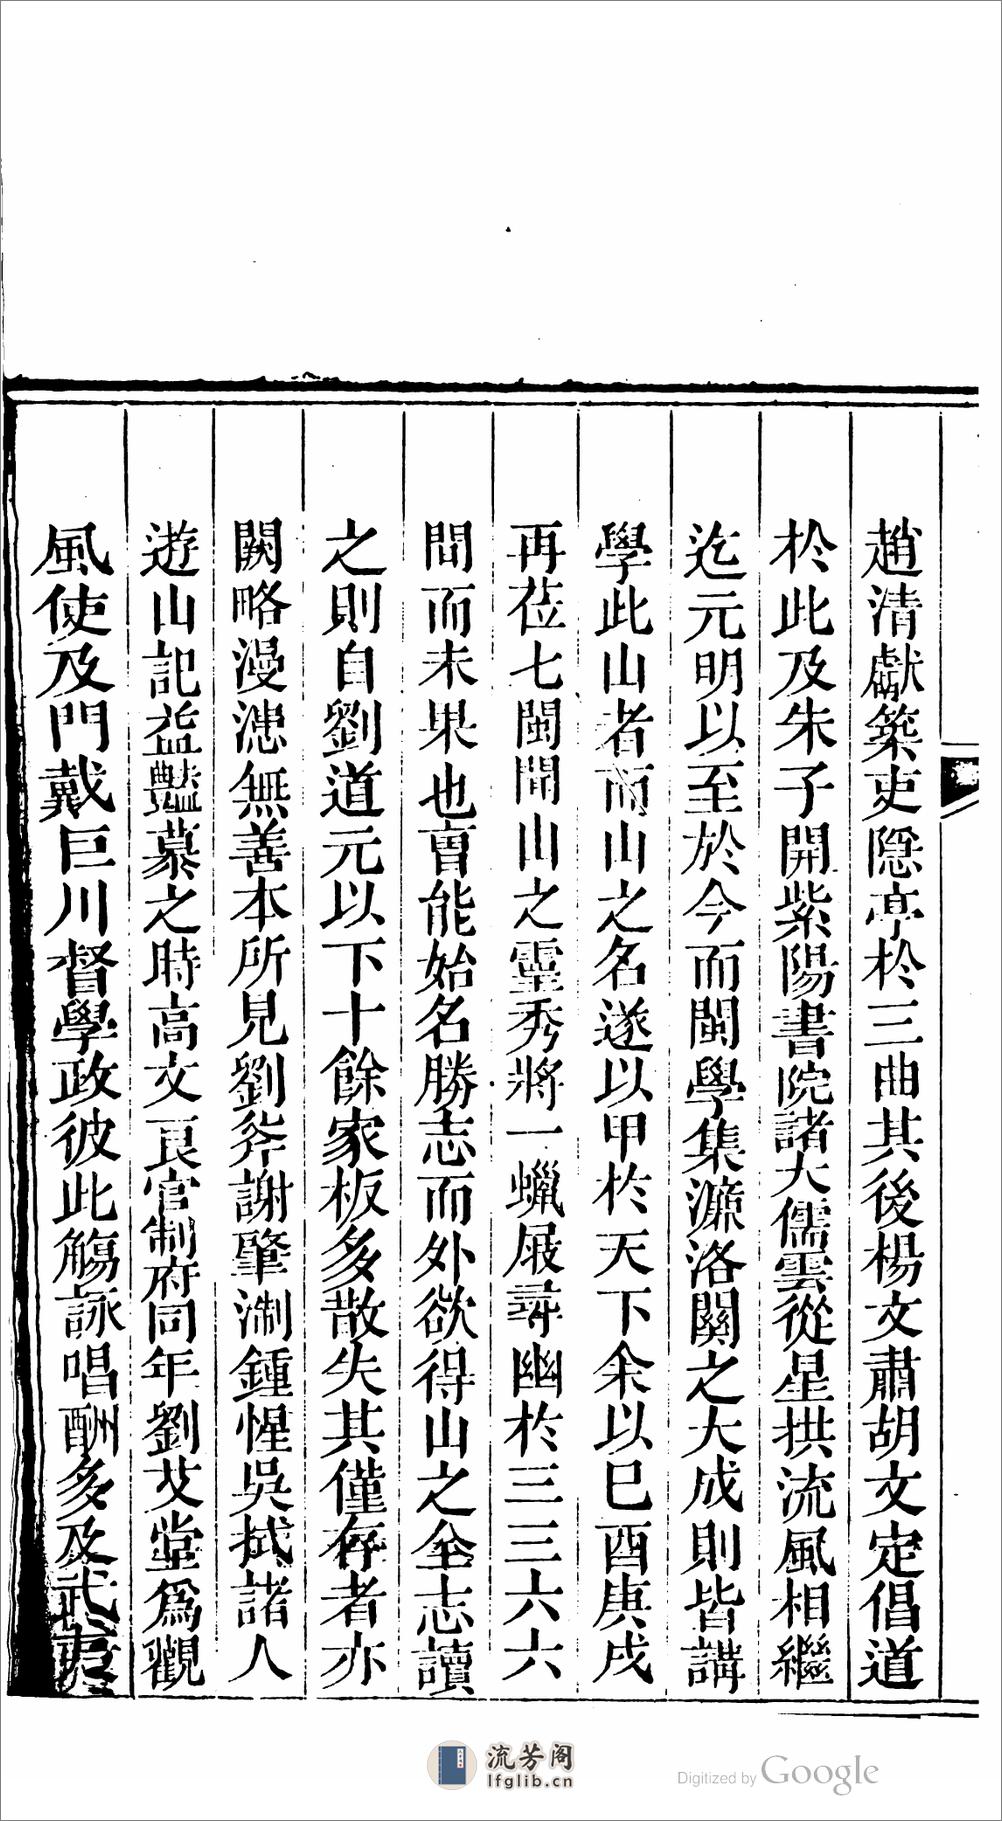 趙清獻築吏隱亭於三曲其後楊文肅胡文定倡道
於此及朱子開紫陽書院諸大儒雲從星拱流風相繼
迄元明以至於今而閩學集濂洛關之大成則皆講
學此山者而山之名遂以甲於天下余以巳酉庚戌
再莅七閩聞山之靈秀將一蠟屐尋幽於三三六六
間而未果也曺能始名勝志而外欲得山之全志讀
之則自劉道元以下十餘家板多散失其僅存者亦
闕略漫漶無善本所見劉斧謝肇淛鍾惺吳拭諸人
遊山記益豔慕之時高文良官制府同年劉艾堂爲觀
風使及門戴巨川督學政彼此觴詠唱酬多及武夷
流芳阁
lfglib.cn
Digitized by Google